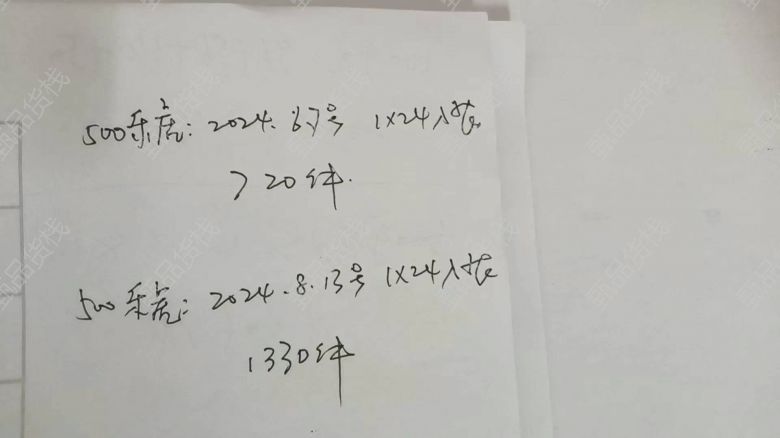 500乐虎: 2024.6.7号 1×24入装
720件.
500乐虎: 2024.8.13号 1×24入装
1330件